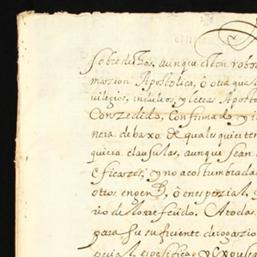 sobredichas, aunque esten robor
mazion Apostolica, ò otra que
uilegios, indultos, y letras Apost
Conzedido, Confirmado, y
nzia debaxo de quales quier ten
quiera clausulas, aunque sean
eficazes, y no acostumbrada
otros en gen.l, ò en espezial, y
rio de lo referido. A todas
para su sufiziente derogazion
pezial, espezifica, y expresa